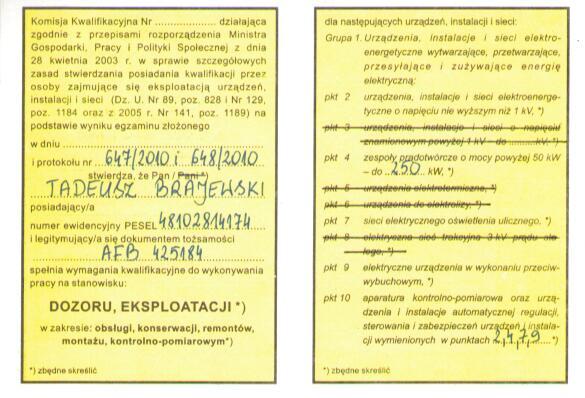 Komisja Kwalifikacyjna Nr .................. działająca
zgodnie z przepisami rozporządzenia Ministra
Gospodarki, Pracy i Polityki Społecznej z dnia
28 kwietnia 2003 r. w sprawie szczegółowych
zasad stwierdzania posiadania kwalifikacji przez
osoby zajmujące się eksploatacją urządzeń,
instalacji i sieci (Dz. U. Nr 89, poz. 828 i Nr 129,
poz. 1184 oraz z 2005 r. Nr 141, poz. 1189) na
podstawie wyniku egzaminu złożonego
w dniu
i protokołu nr 647/2010 i 648/2010
stwierdza, że Pan / Pani *)
TADEUSZ BRAJEWSKI
posiadający/a
numer ewidencyjny PESEL 48102814174
i legitymujący/a się dokumentem tożsamości
AFB 425184
spełnia wymagania kwalifikacyjne do wykonywania
pracy na stanowisku:
DOZORU, EKSPLOATACJI *)
w zakresie: obsługi, konserwacji, remontów,
montażu, kontrolno-pomiarowym*)
*) zbędne skreślić
dla następujących urządzeń, instalacji i sieci:
Grupa 1. Urządzenia, instalacje i sieci elektro-
energetyczne wytwarzające, przetwarzające,
przesyłające i zużywające energię
elektryczną:
pkt 2 urządzenia, instalacje i sieci elektroenerge-
tyczne o napięciu nie wyższym niż 1 kV, *)
pkt 3 urządzenia, instalacje i sieci o napięciu
znamionowym powyżej 1 kV - do ..........kV, *)
pkt 4 zespoły prądotwórcze o mocy powyżej 50 kW
– do 250 kW, *)
pkt 5 urządzenia elektrotermiczne, *)
pkt 6 urządzenia do elektrolizy, *)
pkt 7 sieci elektrycznego oświetlenia ulicznego, *)
pkt 8 elektryczna sieć trakcyjna 3 kV prądu sta-
łego, *)
pkt 9 elektryczne urządzenia w wykonaniu przeciw-
wybuchowym, *)
pkt 10 aparatura kontrolno-pomiarowa oraz urzą-
dzenia i instalacje automatycznej regulacji,
sterowania i zabezpieczeń urządzeń i instala-
cji wymienionych w punktach 2,4,7,9 *)
*) zbędne skreślić